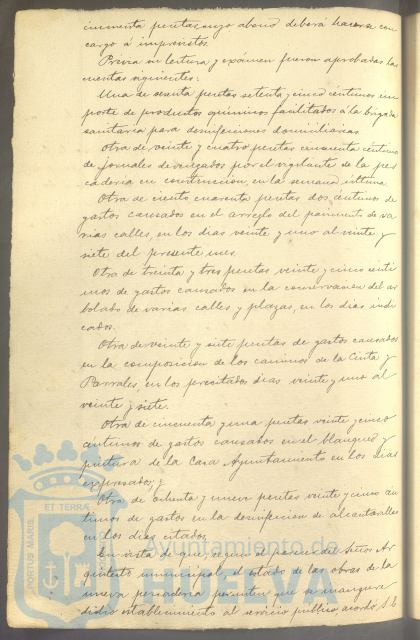 cincuenta pesetas cuyo abono deberá hacerse con
cargo á imprevistos.
Prévia su lectura y exámen fueron aprobadas las
cuentas siguientes:
Una de sesenta pesetas setenta y cinco céntimos im
porte de productos químicos facilitados á la brigada
sanitaria para desinfecciones domiciliarias
Otra de veinte y cuatro pesetas cincuenta céntimos
de jornales devengados por el vigilante de la pes
cadería en construcción, en la semana última
Otra de ciento cuarenta pesetas dos céntimos de
gastos causados en el arreglo del pavimento de va
rias calles, en los dias veinte y uno al veinte y
siete del presente mes.
Otra de treinta y tres pesetas veinte y cinco cénti
mos de gastos causados en la conservacion del ar
bolado de varias calles y plazas, en los dias indi
cados.
Otra de veinte y siete pesetas de gastos causados
en la composicion de los caminos de la Cinta y
Parrales, en los precitados dias veinte y uno al
veinte y siete.
Otra de cincuenta y una pesetas veinte y cinco
céntimos de gastos causados en el blanqueo y
pintura de la Casa Ayuntamiento en los dias
expresados; y
Otra de ochenta y nueve pesetas veinte y cinco cén
timos de gastos en la desinfeccion de alcantarillas
en los dias citados.
En vista de que, segun el parecer del Señor Ar
quitecto municipal, el estado de las obras de la
nueva pescadería permiten que se inaugure
dicho establecimiento al servicio público, acordó S. E.
PORTUS MARIS
ET TERRÆ
Ayuntamiento de
HUELVA